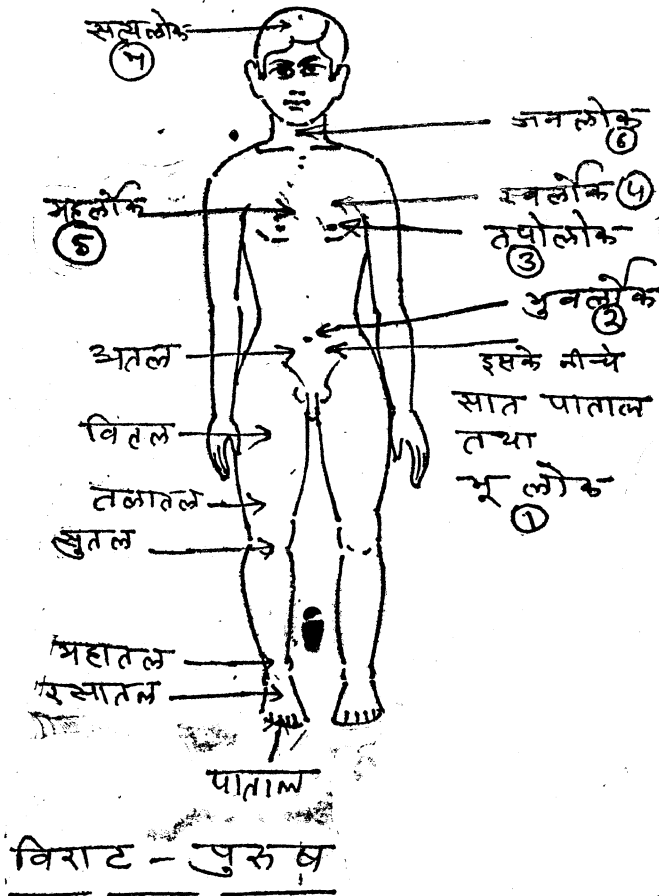 सत्यलोक
7
जनलोक
6
स्वर्लोक 4
महर्लोक
5
तपोलोक
3
भुवर्लोक
2
अतल
इसके नीचे
सात पाताल
वितल
तथा
भू लोक
1
तलातल
सुतल
महातल
रसातल
पाताल
विराट - पुरुष